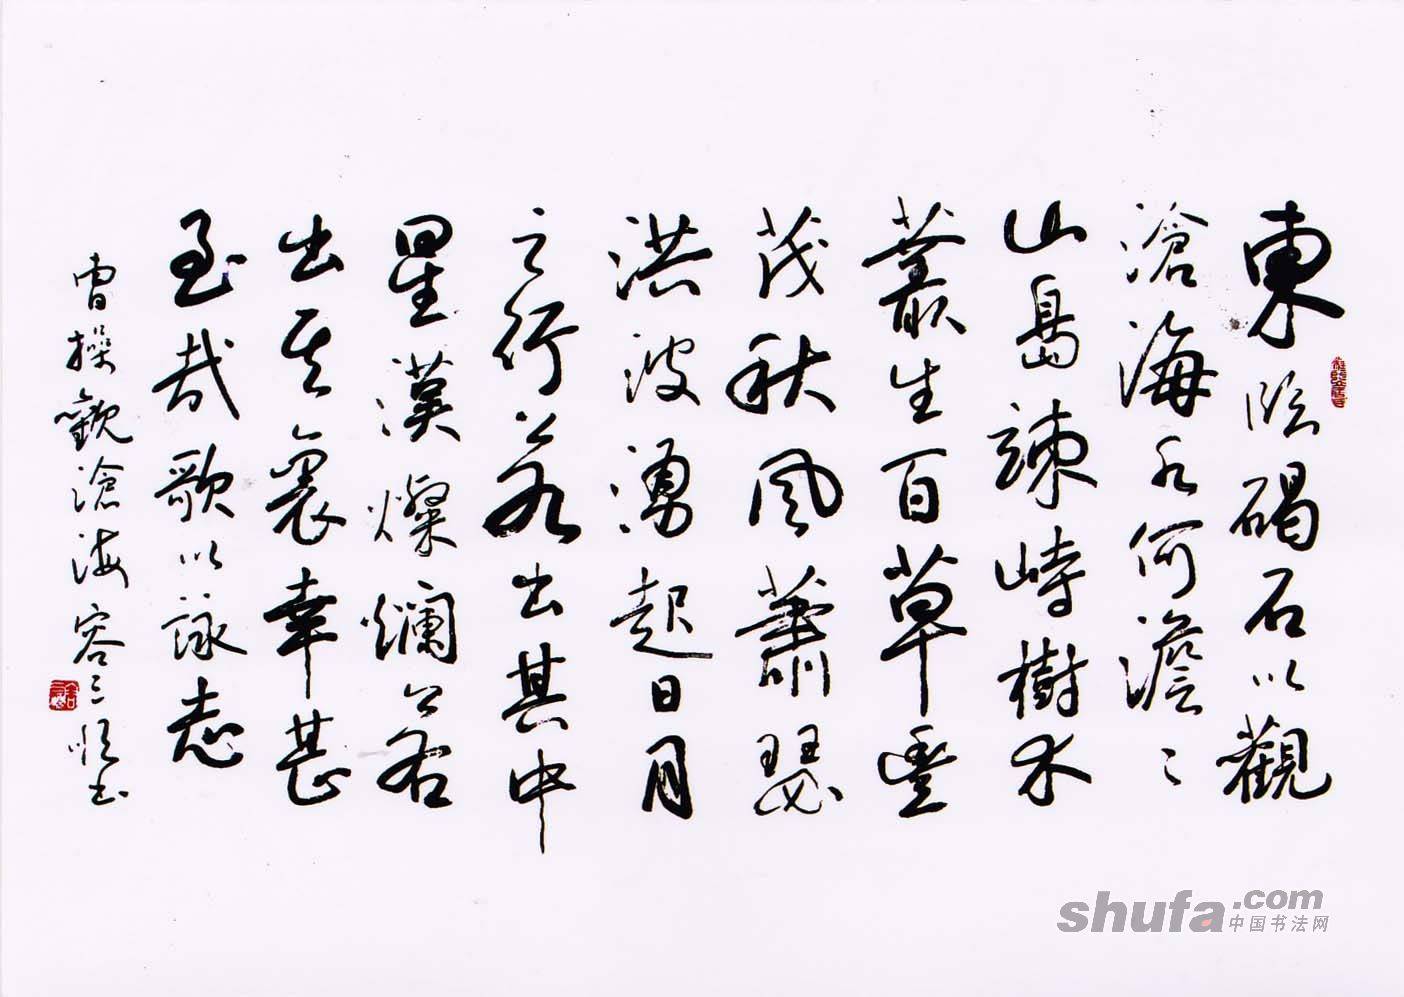 東臨碣石以觀
滄海水何澹〻
山島竦峙樹木
叢生百草豐
茂秋風蕭瑟
洪波湧起日月
之行若出其中
星漢燦爛若
出其裏幸甚
至哉歌以詠志
曹操觀滄海 容三书
shufa.com
中国书法网